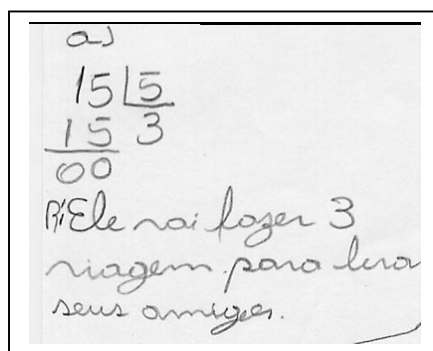 a)
15 5
15 3
00
R: Ele vai fazer 3
viagem para leva
seus amigos.